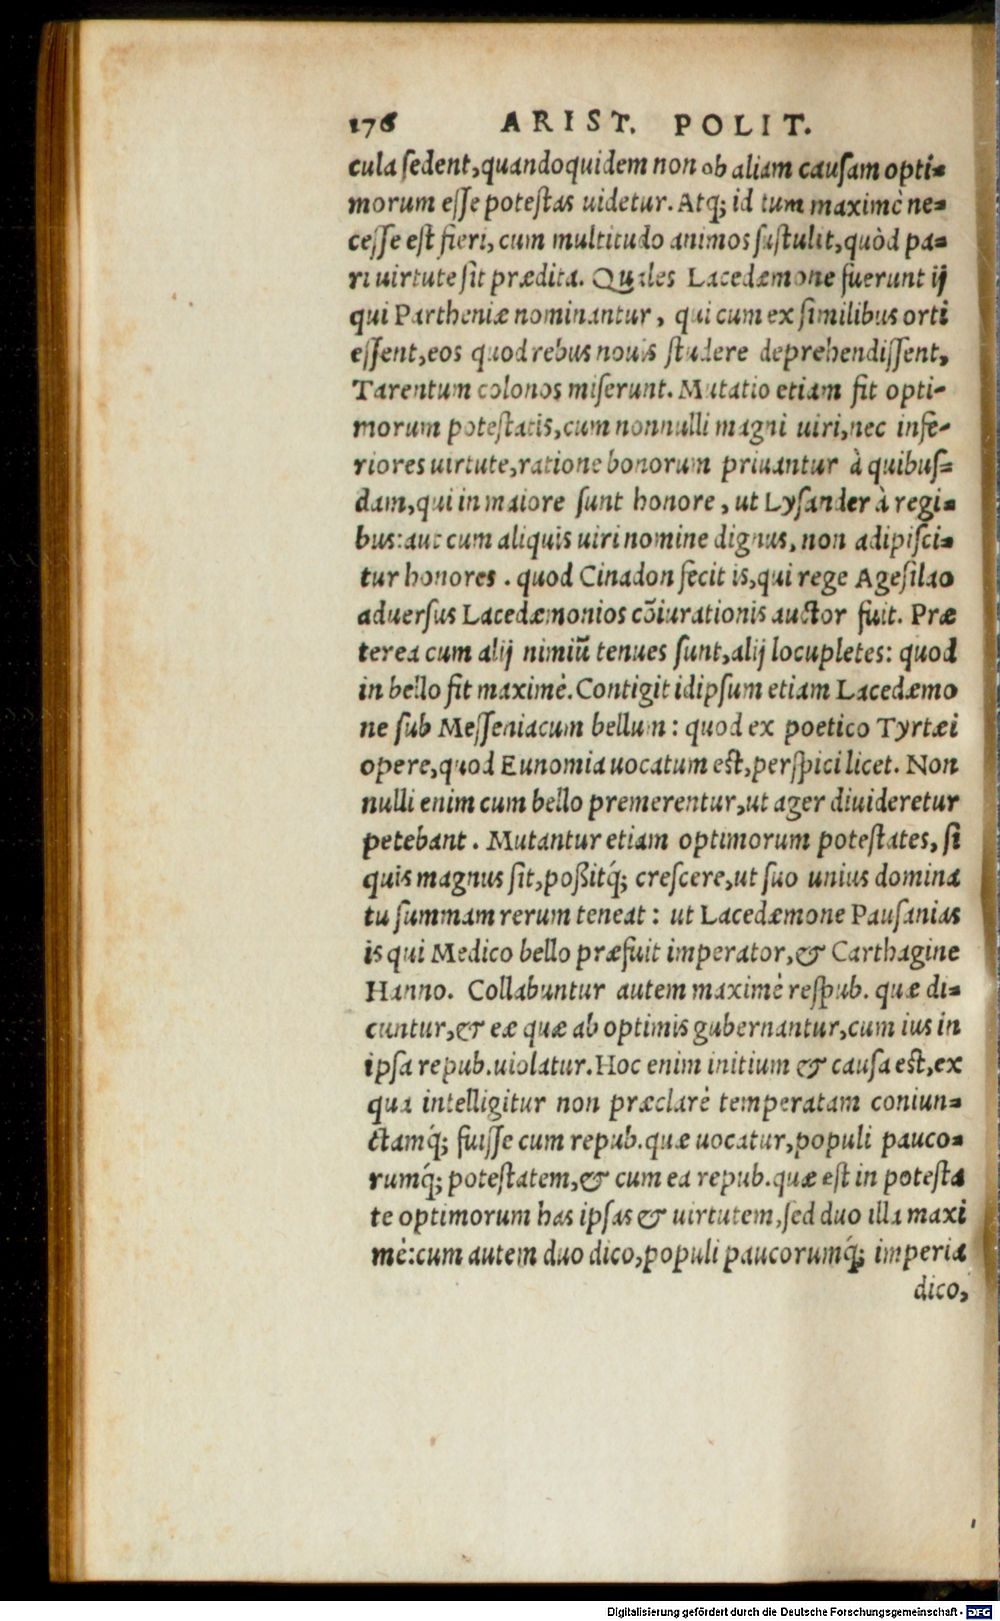 176 ARIST. POLIT.
cula ſedent, quandoquidem non ob aliam cauſam opti=
morum eſſe poteſtas uidetur. Atq; id tum maximè ne=
ceſſe eſt fieri, cum multitudo animos ſuſtulit, quòd pa=
ri uirtute ſit prædita. Quales Lacedæmone fuerunt ij
qui Partheniæ nominantur, qui cum ex ſimilibus orti
eſſent, eos quod rebus nouis ſtudere deprehendiſſent,
Tarentum colonos miſerunt. Mutatio etiam fit opti-
morum poteſtatis, cum nonnulli magni uiri, nec infe-
riores uirtute, ratione bonorum priuantur à quibuſ=
dam, qui in maiore ſunt honore, ut Lyſander à regi=
bus: aut cum aliquis uiri nomine dignus, non adipiſci=
tur honores. quod Cinadon fecit is, qui rege Ageſilao
aduerſus Lacedæmonios cõiurationis auctor fuit. Præ
terea cum alij nimiũ tenues ſunt, alij locupletes: quod
in bello fit maximè. Contigit idipſum etiam Lacedæmo
ne ſub Meſſeniacum bellum: quod ex poetico Tyrtæi
opere, quod Eunomia uocatum eſt, perſpici licet. Non
nulli enim cum bello premerentur, ut ager diuideretur
petebant. Mutantur etiam optimorum poteſtates, ſi
quis magnus ſit, poßitq́; creſcere, ut ſuo unius domina
tu ſummam rerum teneat: ut Lacedæmone Pauſanias
is qui Medico bello præfuit imperator, & Carthagine
Hanno. Collabuntur autem maximè reſpub. quæ di=
cuntur, & eæ quæ ab optimis gubernantur, cum ius in
ipſa repub. uiolatur. Hoc enim initium & cauſa eſt, ex
qua intelligitur non præclarè temperatam coniun=
ctamq́; fuiſſe cum repub. quæ uocatur, populi pauco=
rumq́; poteſtatem, & cum ea repub. quæ eſt in poteſta
te optimorum has ipſas & uirtutem, ſed duo illa maxi
mè: cum autem duo dico, populi paucorumq́; imperia
dico,
Digitalisierung gefördert durch die Deutsche Forschungsgemeinschaft - DFG